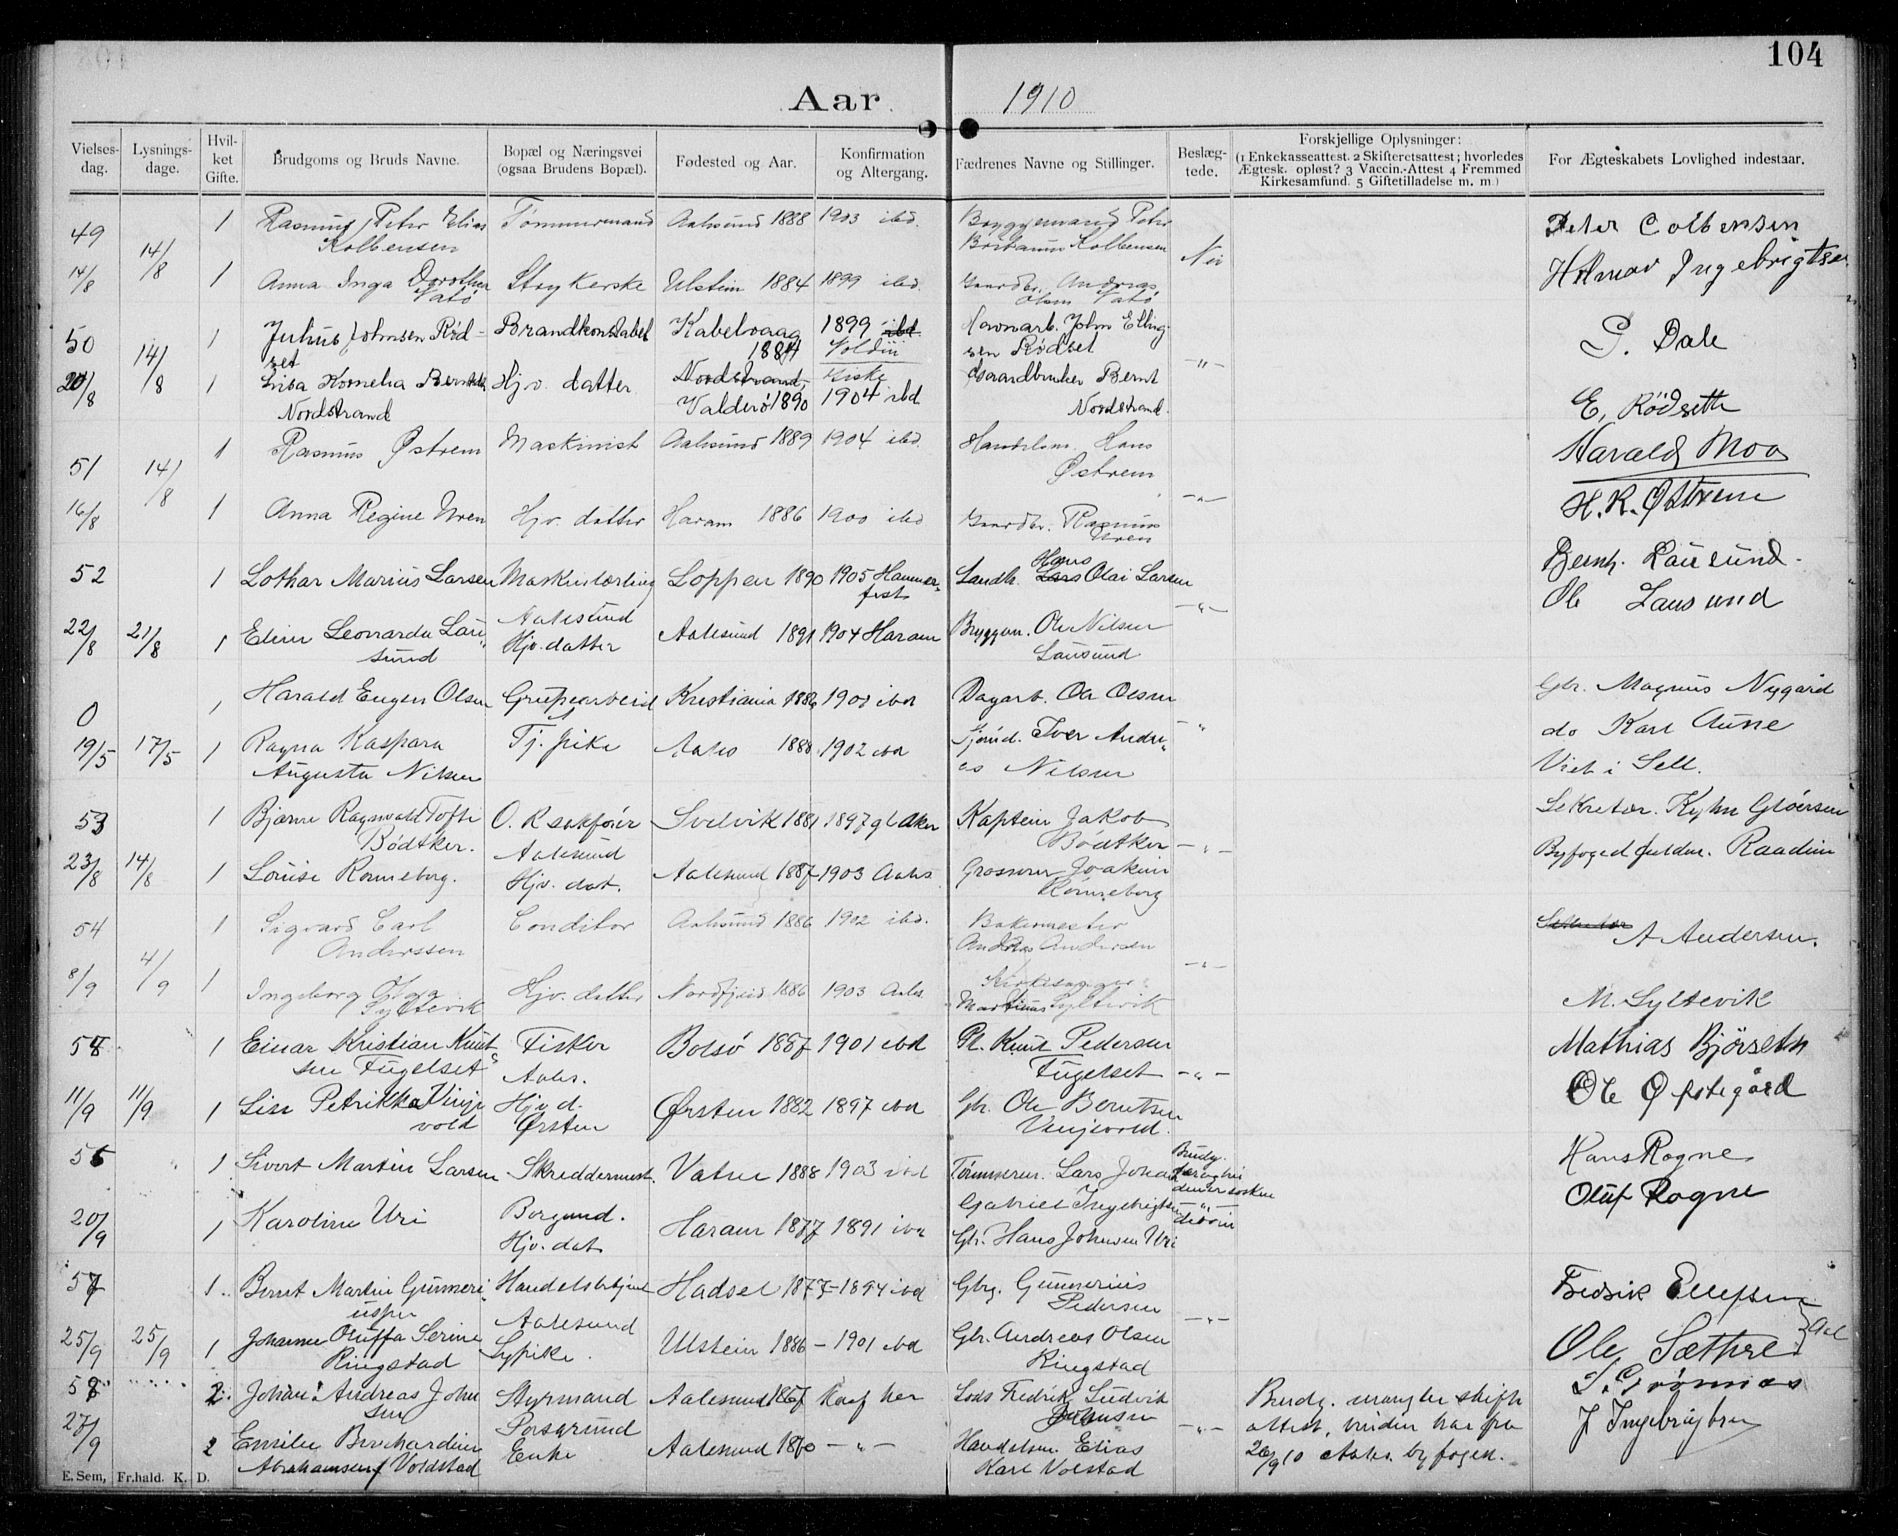 104
Aar 1910
Vielses-dag. Lysnings-dage. Hvil-ket Gifte. Brudgoms og Bruds Navne. Bopæl og Næringsvei (ogsaa Brudens Bopæl). Fødested og Aar. Konfirmation og Altergang. Fædrenes Navne og Stillinger. Beslæg-tede. Forskjellige Oplysninger: (1 Enkekasseattest. 2 Skifteretsattest; hvorledes Ægtesk. opløst? 3 Vaccin.-Attest 4 Fremmed Kirkesamfund. 5 Giftetilladelse m. m.) For Ægteskabets Lovlighed indestaar.
49 14/8 1 Rasmus Peter Elias Tømmermand Aalesund 1888 1903 ibd. Bryggemand Peter Peter Colbensen
Kolbensen Kolbensen Nei
14/8 1 Anna Inga Dorothea Strykerske Ulstein 1884 1899 ibd. Gaardbr. Andreas Hilmar Ingebrigtsen
Vatø Olsen Vatø
50 14/8 1 Julius Johnsen Rød- Brandkonstabel Kabelvaag 1899 ibd. Havnarb. John Elling- P. Dale
set 1884 sen Rødset -"-
20/8 1 Hjv. datter Nordstrand, Giske Gaardbruker Bernt E. Rødsette
Nordstrand Valderø 1890 1904 ibd. Nordstrand.
51 14/8 1 Rasmus Østrem Maskinist Aalesund 1889 1904 ibd. Handelsm. Hans Harald Moa
Østrem -"-
16/8 1 Anna Regine Uren Hjv. datter Haram 1886 1900 ibd Gaardbr. Rasmus H. K. Østrem
Uren
52 1 Lothar Marius Larsen Maskinlærling Loppen 1890 1905 Hammer- Landh. Lars Hans Olai Larsen Bernh. Lausund.
Aalesund fest -"- Ole Lausund
22/8 21/8 1 Elise Leonarda Lau- Hjv. datter Aalesund 1891 1904 Haram Bryggem. Ole Nilsen
sund Lausund
0 1 Harald Eugen Olsen Grubearbeid Kristiania 1886 1901 ibd Dagarb. Ole Olsen -"- Gbr. Magnus Nygård
19/5 17/5 1 Ragna Kaspara Tj. pike Aales 1888 1902 ibd Iver Andre- do Karl Aune
Augusta Nilsen as Nilsen Viet i Sell.
53 1 Bjarne Ragnvald Tofte O. R sakfører Svelvik 1881 1897 gl Aker Kaptein Jakob Sekretær. Kyhn Gløersen
Bødtker. Aalesund Bødtker -"-
23/8 14/8 1 Louise Rønneberg. Hjv. dat. Aalesund 1887 1903 Aales. Grosserer Joakim Byfogedfuldm. Raadim
Rønneberg
54 4/9 1 Sigvard Carl Conditor Aalesund 1886 1902 ibd. Bakermester Sekretær A Andersen.
Anderssen Andreas Andersen -"-
8/9 1 Ingeborg Olga Hjv. datter Nordfjeid 1886 1903 Aales Kirkesanger M. Syltevik
Syltevik Martinus Syltevik
55 1 Einar Kristian Knut- Fisker Bolsø 1887 1901 ibd Pl. Knut Pedersen Mathias Bjørseth
sen Fugelset Aales. Fugelset -"-
11/9 11/9 1 Lise Petrikka Vinje- Hjv d. Ørsten 1882 1897 ibd Gbr. Ole Berntsen Ole Opstegård
vold Ørsten Vinjevold.
56 1 Sivert Martin Larsen Skreddermest. Vatne 1888 1903 ibd Tømmerm. Lars Johan Brudg. Hans Rogne
Gabriel Ingebrigtsen
20/9 1 Karoline Uri Borgund. Haram 1877 1891 ibd Gbr. Hans Johnsen Uri Oluf Rogne
Hjv. dat
57 1 Bernt Martin Gunneri- Handelsbetjent Hadsel 1877 - 1894 ibd Gbrg. Gunnerius Fredrik Ellefsen
ussen Aalesund Pedersen -"- Aal
25/9 25/9 1 Johanne Oluffa Serine Sypike. Ulstein 1886 - 1901 ibd Gbr. Andreas Olsen Ole Sæthre
Ringstad Ringstad
58 2 Johan Andreas John Styrmand Aalesund 1867 Konf her Lods Fredrik Ludvik Brudg. mangler skifte
sen Porsgrund Johnsen -"- attest, bruden har fra J Ingebrigtsen
27/9 2 Emilie Bernhardine Enke Aalesund 1860 -"- Handelsm. Elias 26/9 10 Aales. byfoged.
Abrahamsen f Voldstad Karl Volstad
E. Sem, Fr.hald. K. D.